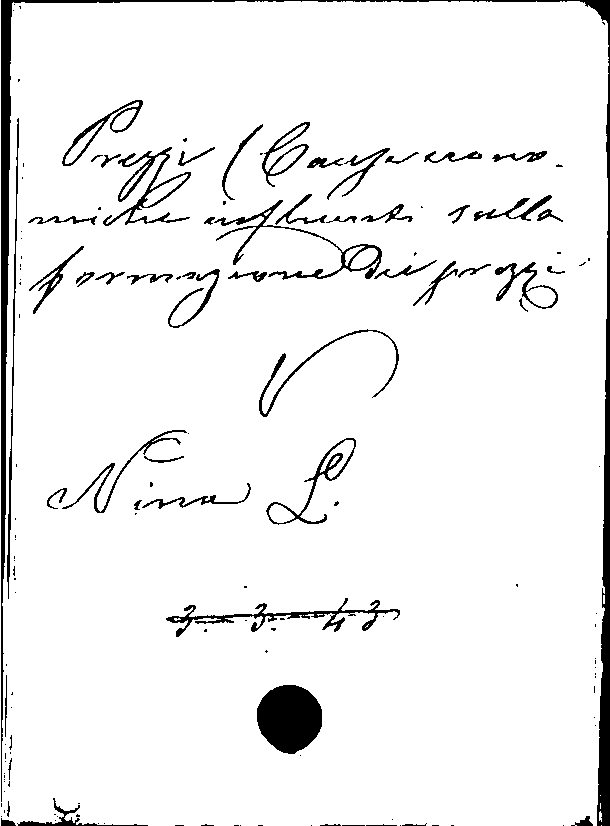 Prezzi (Cause econo-
miche influenti sulla
formazione dei prezzi
V
Nina L.
3. 3. 43